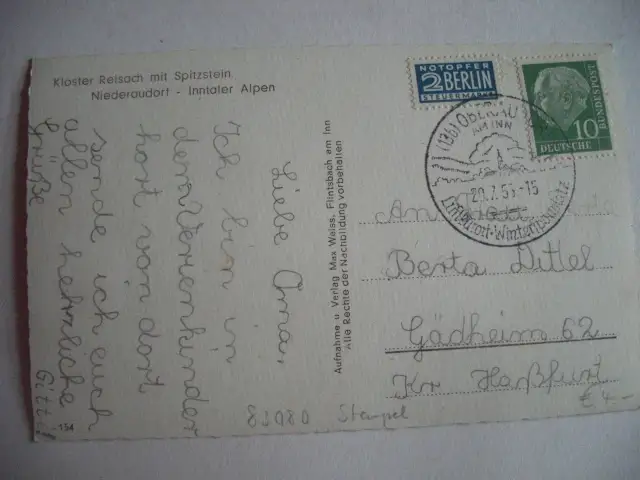 Kloster Reisach mit Spitzstein
Niederaudorf - Inntaler Alpen
Liebe Oma,
Ich bin in
der Verienkinder
hort von dort
sende ich euch
allen herzliche
Grüße
Aufnahme u. Verlag Max Weiss, Flintsbach am Inn
Alle Rechte der Nachbildung vorbehalten
134
NOTOPFER
2 BERLIN
STEUERMARKE
10
DEUTSCHE
BUNDESPOST
(13b) OBERAU
AM INN
20.7.5 -15
Luftkurort-Wintersportplatz
An
Berta Dittel
Gädheim 62
Kr Haßfurt
83080 Stempel
€ 4-